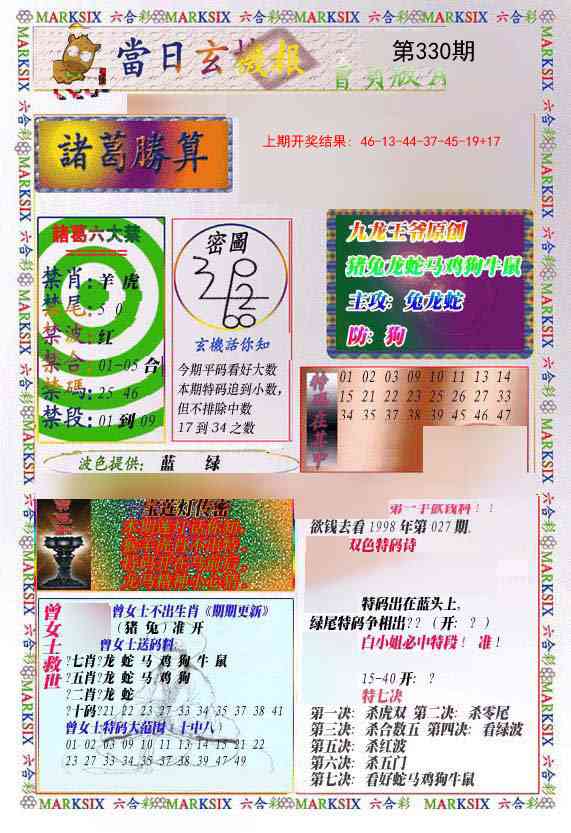 MARKSIX 六合彩 MARKSIX 六合彩 MARKSIX 六合彩 MARKSIX 六合彩
當日玄機报
第330期
諸葛勝算
上期开奖结果: 46-13-44-37-45-19+17
諸葛六大禁
禁肖: 羊 虎
禁尾: 5 0
禁波: 红
禁合: 01-05 合
禁碼: 25 46
禁段: 01 到 09
密圖
玄機話你知
今期平码看好大数
本期特码追到小数,
但不排除中数
17 到 34 之数
九龙王爷原创
猪兔龙蛇马鸡狗牛鼠
主攻: 兔龙蛇
防: 狗
特码在其中
01 02 03 09 10 11 13 14
15 21 22 23 25 26 27 33
34 35 37 38 39 45 46 47
波色提供: 蓝 绿
宝莲灯传密
欲钱去看 1998 年第 027 期.
双色特码诗
特码出在蓝头上,
绿尾特码争相出?? (开: ? )
白小姐必中特段! 准!
15-40 开: ?
特七决
第一决: 杀虎双 第二决: 杀零尾
第三决: 杀合数五 第四决: 看绿波
第五决: 杀红波
第六决: 杀五门
第七决: 看好蛇马鸡狗牛鼠
曾女士救世
曾女士不出生肖《期期更新》
(猪 兔) 准 开
曾女士送码料
?七肖?龙 蛇 马 鸡 狗 牛 鼠
?五肖?龙 蛇 马 鸡 狗
?二肖?龙 蛇
?十码?21 22 23 27 33 34 35 37 38 41
曾女士特码大范围 (十中八)
01 02 03 09 10 11 13 14 15 21 22
23 27 33 34 35 37 38 39 47 49
MARKSIX 六合彩 MARKSIX 六合彩 MARKSIX 六合彩 MARKSIX 六合彩